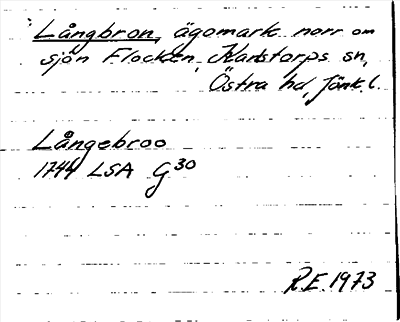 Långbron, ägomark norr om
sjön Flocken, Karlstorps sn,
Östra hd, Jönk. l.
Långebroo
1744 LSA G30
R.E. 1973